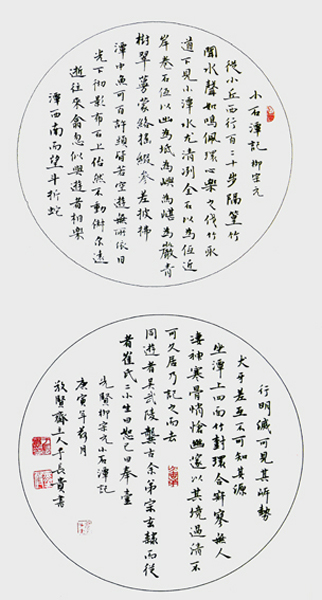 小石潭記 柳宗元
從小丘西行百二十步隔篁竹
聞水聲如鳴佩環心樂之伐竹取
道下見小潭水尤清洌全石以為底近
岸卷石底以出為坻為嶼為嵁為巖青
樹翠蔓蒙絡搖綴參差披拂
潭中魚可百許頭皆若空遊無所依日
光下徹影布石上佁然不動俶爾遠
逝往來翕忽似與遊者相樂
潭西南而望斗折蛇
行明滅可見其岸勢
犬牙差互不可知其源
坐潭上四面竹樹環合寂寥無人
淒神寒骨悄愴幽邃以其境過清不
可久居乃記之而去
同遊者吳武陵龔古余弟宗玄隸而從
者崔氏二小生曰恕己曰奉壹
先賢柳宗元小石潭記
庚寅年
齋主人 長貴書